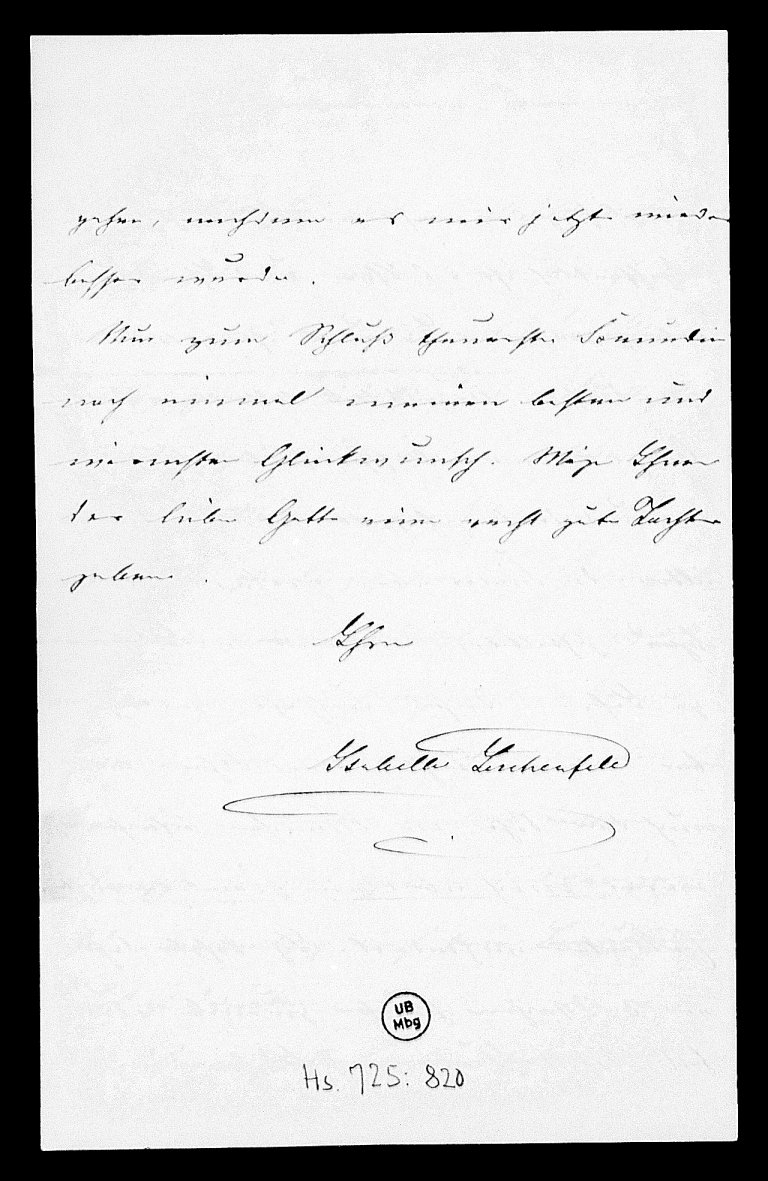 gehen, nachdem es mir jetzt wieder
besser wurde.
Nun zum Schluß theuerste Freundin
noch einmal meinen besten und
wärmsten Glückwunsch. Möge Ihnen
der liebe Gott eine recht gute Tochter
geben.
Ihre
Isabella Lerchenfeld
UB
Mbg
Hs. 725: 820